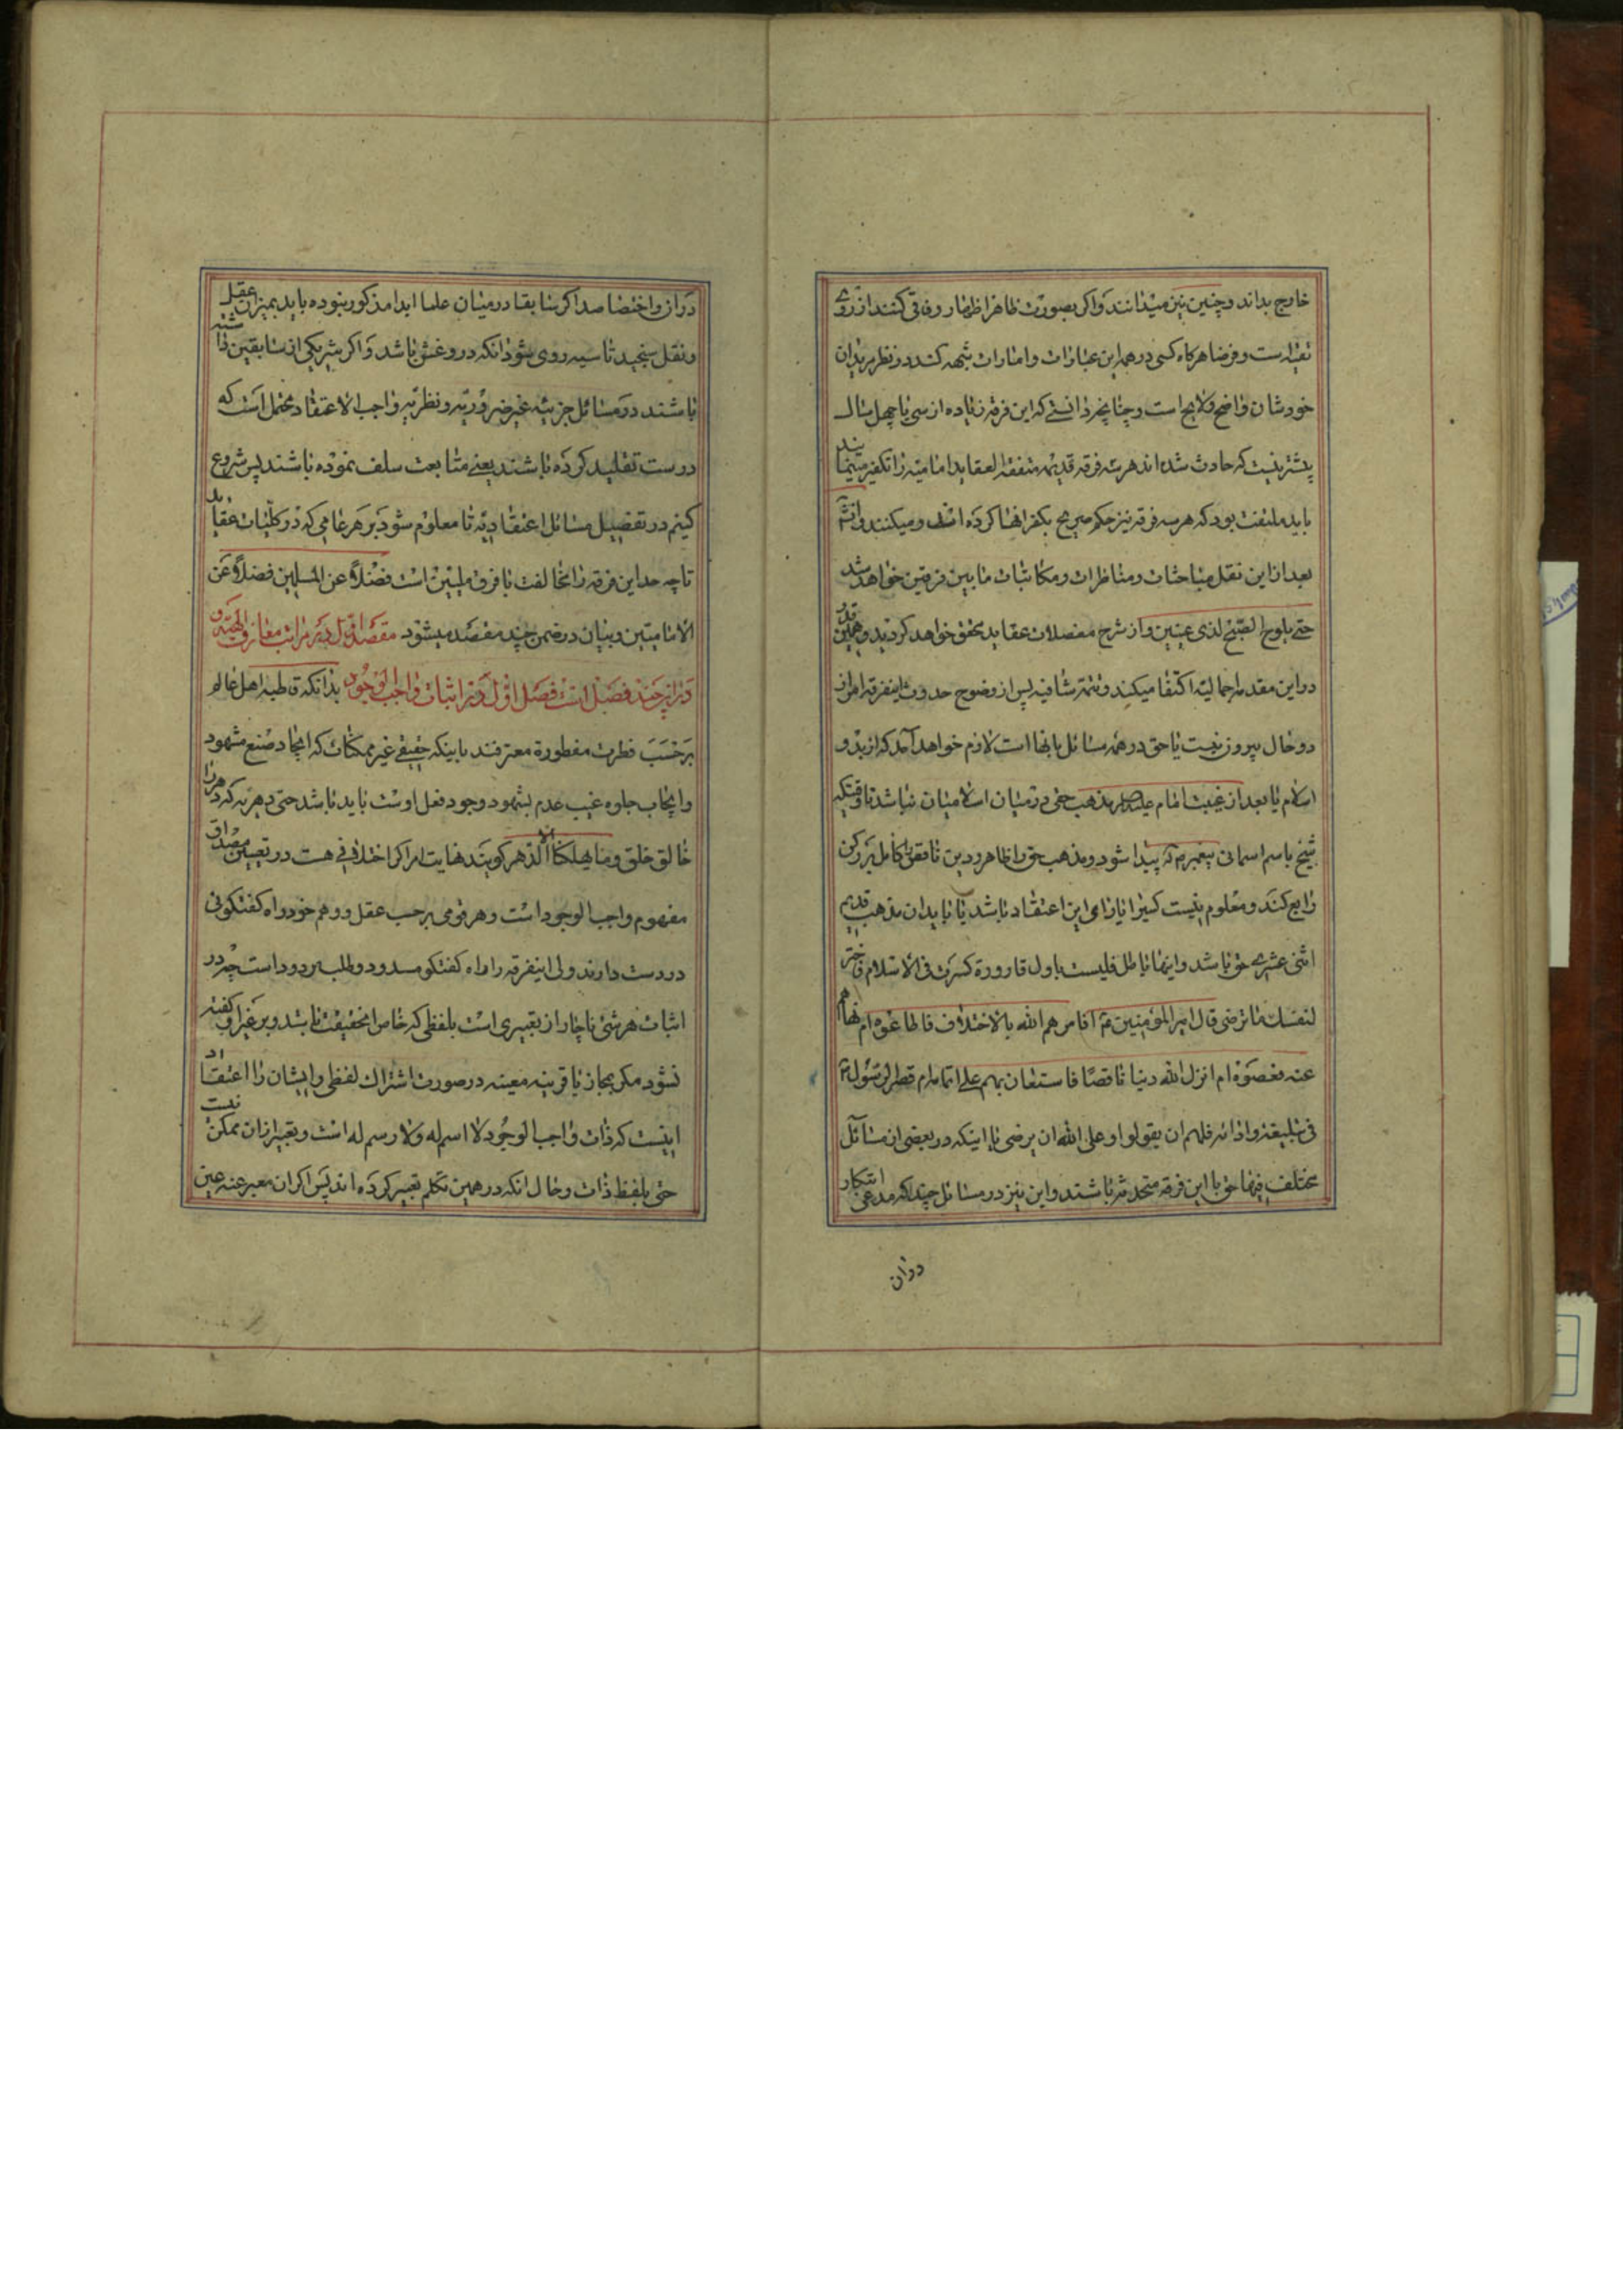 خارج بداند و چنین نیز میدانند و اکر بصورت ظاهر اظهار وفاقی کنند از روی
تقیه است و فرضا هرکاه کسی در همه این عبارات و امارات شبهه کند در نظر مریدان
خودشان واضح ولایح است و چنانچه دانستی که این فرقه زیاده از سی یا چهل سال
بیشتر نیست که حادث شده اند هر سه فرقه قدیمه متفقة العقاید امامیه را تکفیر مینمایند
باید ملتفت بود که هر سه فرقه نیز حکم صریح بکفر انها کرده اند و میکنند و انشاء
بعد از این نقل مباحثات و مناظرات و مکاتبات ما بین فرقین خواهد شد
حتی یلوح الصبح لذی عینین و از شرح مفصلات عقاید محقق خواهد کردید و همین قدر
در این مقدمه اجمالیه اکتفا میکند و تتمه شافیه پس از وضوح حدوث اینفرقه امر از
دو حال بیرون نیست یا حق در همه مسائل با انها است لازم خواهد آمد که از بدو
اسلام یا بعد از غیبت امام علیه السلام مذهب حقی در میان اسلامیان نباشد تا وقتیکه
شیخ باسم اسمانی پیغمبر پیدا شود و مذهب حق را ظاهر و دین ناقص را کامل بر رکن
رابع کند و معلوم نیست کسیرا یارای این اعتقاد باشد یا باید ان مذهب قدیم
اثنی عشری حق باشد و اینها باطل فلیست باول قارورة کسرت فی الاسلام فاختر
لنفسک ما ترضی قال امیر المؤمنین ع افامرهم الله بالاختلاف فاطاعوه ام نهاهم
عنه فعصوه ام انزل الله دینا ناقصا فاستعان بهم علی اتمامه ام قصر الرسول
فی تبلیغه و ادائه فلهم ان یقولوا و علی الله ان یرضی یا اینکه در بعضی از مسائل
مختلف فیها حق با این فرقه متحدثه باشند و این نیز در مسائل چند که مدعی ابتکار
دران
دران و اختصاصند اکر سابقا در میان علما ابدا مذکور نبوده باید بمیزان عقل
و نقل سنجید تا سیه روی شود انکه در و غش باشد و اکر شریکی از سابقین داشته
باشند در مسائل جزئیه غیر ضروریه و نظریه واجب الاعتقاد محتمل است که
درست تقلید کرده باشند یعنی متابعت سلف نموده باشند پس شروع
کنیم در تفصیل مسائل اعتقادیه تا معلوم شود بر هر عامی که در کلیات عقاید
تا چه حد این فرقه را مخالفت با فرق ملیین است فضلا عن المسلمین فضلا عن
الامامیین و بیان در ضمن چند مقصد میشود مقصد اول در مراتب معارف الهیه و
در ان چند فصل است فصل اول در اثبات واجب الوجود بدانکه قاطبه اهل عالم
بر حسب فطرت مفطوره معترفند باینکه حقیقی غیر ممکنات که ایجاد صنع مشهود
و ایجاب جلوه غیب عدم بشهود وجود فعل اوست باید باشد حتی دهریه که دهر را
خالق خلق و ما یهلکنا الا الدهر کویند نهایت امر اکر اختلافی هست در تعیین مصداق
مفهوم واجب الوجود است و هر قومی بر حسب عقل و وهم خود راه کفتکوئی
در دست دارند ولی اینفرقه را راه کفتکو مسدود و طلب مردود است چه در
اثبات هر شئ ناچار از تعبیری است بلفظی که خاص انحقیقت باشد و بر غیر او کفته
نشود مکر بمجاز یا قرینه معینه در صورت اشتراک لفظی و ایشان را اعتقاد
اینست که ذات واجب الوجود لا اسم له و لا رسم له است و تعبیر ازان ممکن نیست
حتی بلفظ ذات و حال انکه در همین تکلم تعبیر کرده اند پس اکر ان معبر عنه عین